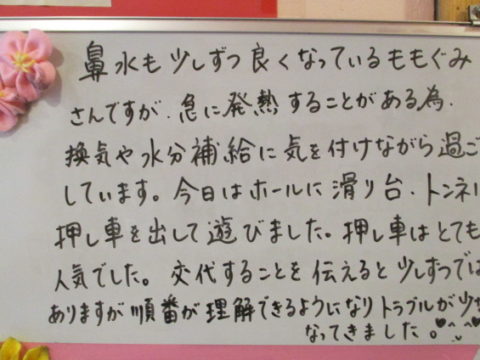 鼻水も少しずつ良くなっているももぐみ
さんですが、急に発熱することがある為、
換気や水分補給に気を付けながら過ご
しています。今日はホールに滑り台、トンネル
押し車を出して遊びました。押し車はとても
人気でした。交代することを伝えると少しずつでは
ありますが順番が理解できるようになりトラブルが少
なってきました。